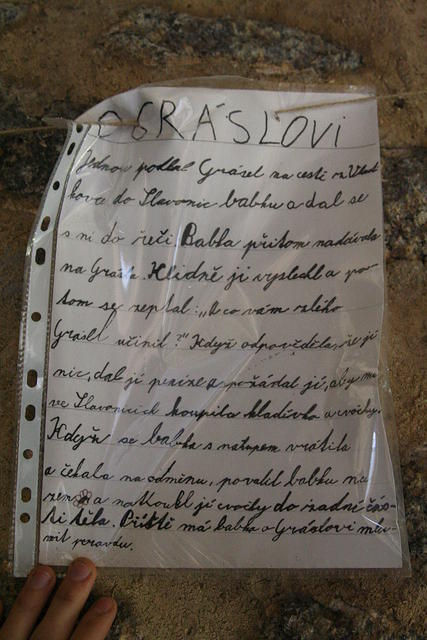 O GRÁSLOVI
Jednou podlal Grásel na cestě z Vlast
kovce do Slavonic babku a dal se
s ní do řeči. Babka přitom nadávala
na Grásla. Klidně ji vyslechl a po-
tom se zeptal: „A co vám zlého
Grásl učinil?" Když odpověděla, že jí
nic, dal jí peníze a požádal ji, aby mu
ve Slavonicích koupila kladívko a cvočky.
Když se babka s nákupem vrátila
a čekala na odměnu, povalil babku na
zem a natloukl jí cvočky do zadní čás-
ti těla. Příště má babka o Gráslovi mlu-
vit pravdu.